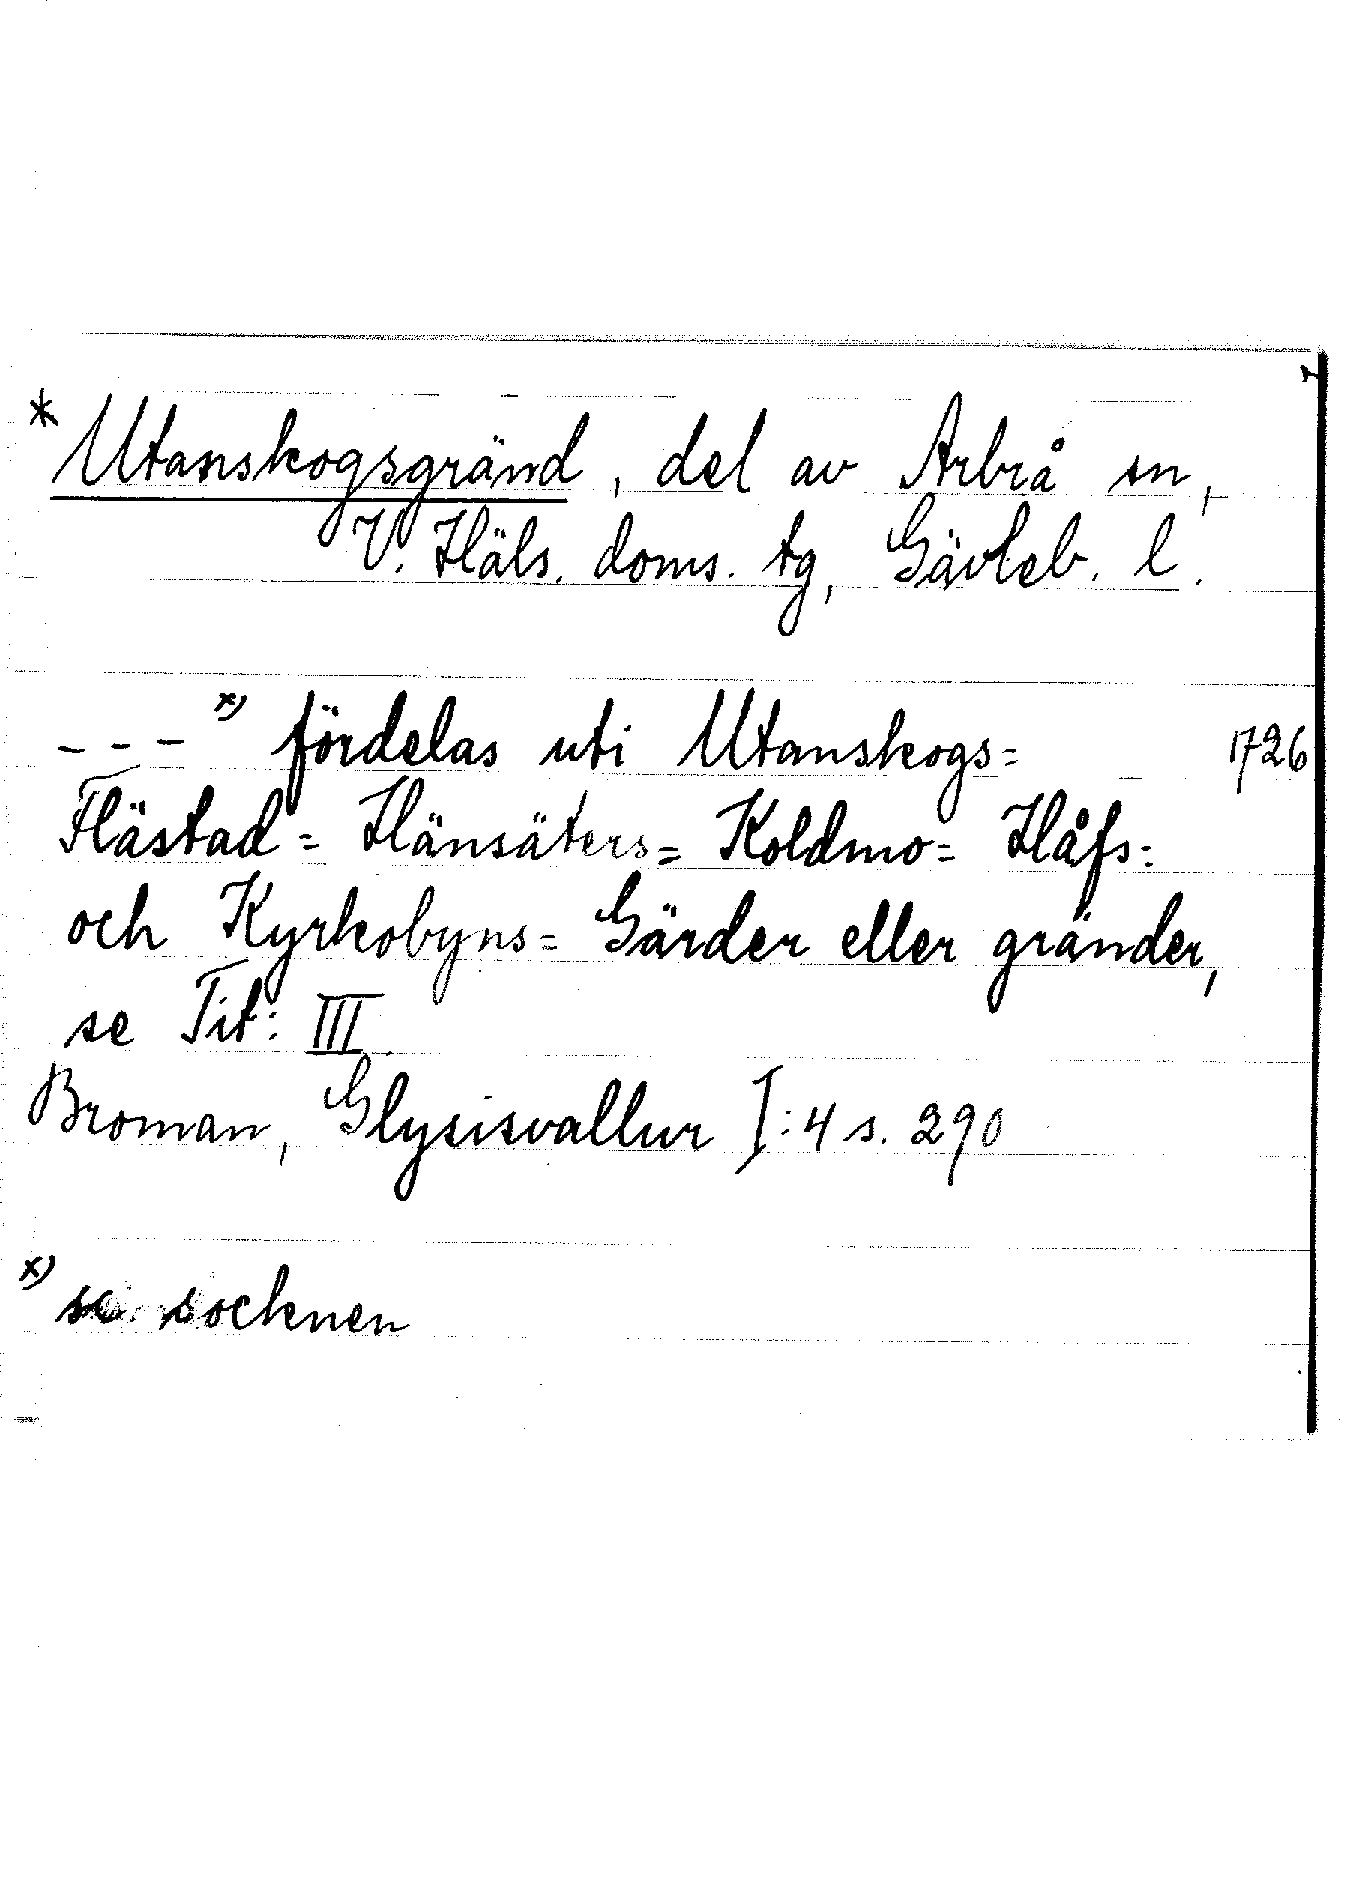 * Utanskogsgränd, del av Arbrå sn,
V. Häls. doms. tg, Gävleb. l.
- - - x) fördelas uti Utanskogs= 1726
Flästad= Hänsäters= Koldmo= Håfs=
och Kyrkobyns= Gärder eller gränder,
se Tit: III
Broman, Glysisvallur I:4 s. 290
x) se socknen